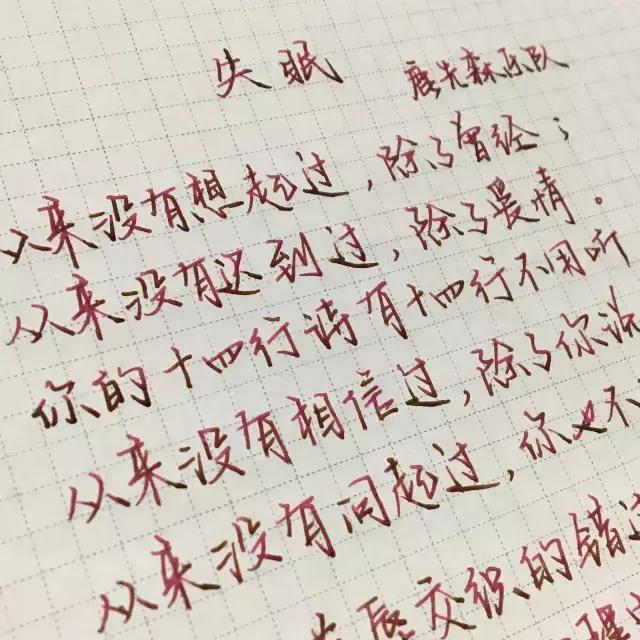 失眠 鹿先森乐队
从来没有想起过,除了曾经;
从来没有还到过,除了晨情。
你的十四行诗有十四行不用听
从来没有相信过,除了你说
从来没有问起过,你也不
交织的错过